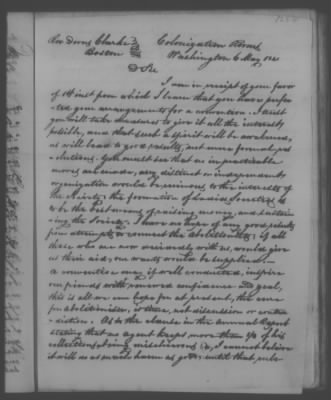 Rev Dorus Clarke
Boston
Colonization Rooms
Washington 6 May
Dr Sir
I am in receipt of your favor
of 1st inst from which I learn that you have perfec
ted your arrangements for a convention. I trust
you will take measures to give it all the interest
possible, and that such a spirit will be awakened,
as will lead to good results, not mere formal res
olutions. You must see that as impracticable
moves are made, any distinct or independent
organization would be ruinous to the interests of
the Society; the formation of Societies is
to be the best means of raising money, and sustain
ing the Society. I have no hope of any good results
from attempts to convert the abolitionists; if all
those who are now sincerely with us, would give
us their aid, our wants would be supplied.—
a convention may, if well conducted, inspire
our friends with renewed confidence and zeal,
this is all we can hope for at present, the cure
for abolitionism, is time, not discussion or contra
diction. As to the clause in the annual Report
stating that no agent keeps more than of his
collections, being mischievous &c, I cannot believe
it will do as much harm as good, until that